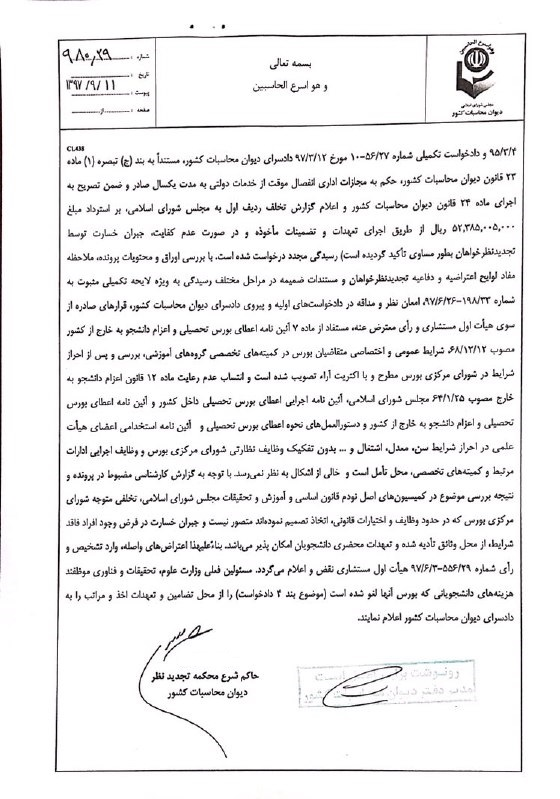 بسمه تعالی
و هو اسرع الحاسبین
مجلس شورای اسلامی
دیوان محاسبات کشور
شماره :
تاریخ : ۱۳۹۷/۹/۱۱
پیوست :
صفحه : از
CL438
۹۵/۳/۴ و دادخواست تکمیلی شماره ۵۶/۲۷-۱۰ مورخ ۹۷/۳/۱۲ دادسرای دیوان محاسبات کشور، مستنداً به بند (ج) تبصره (۱) ماده
۲۳ قانون دیوان محاسبات کشور، حکم به مجازات اداری انفصال موقت از خدمات دولتی به مدت یکسال صادر و ضمن تصریح به
اجرای ماده ۲۴ قانون دیوان محاسبات کشور و اعلام گزارش تخلف ردیف اول به مجلس شورای اسلامی، بر استرداد مبلغ
۵۲,۳۸۵,۰۰۵,۰۰۰ ریال از طریق اجرای تعهدات و تضمینات مأخوذه و در صورت عدم کفایت، جبران خسارت توسط
تجدیدنظرخواهان بطور مساوی تأکید گردیده است) رسیدگی مجدد درخواست شده است. با بررسی اوراق و محتویات پرونده، ملاحظه
مفاد لوایح اعتراضیه و دفاعیه تجدیدنظرخواهان و مستندات ضمیمه در مراحل مختلف رسیدگی به ویژه لایحه تکمیلی مثبوت به
شماره ۱۹۸/۳۳-۹۷/۶/۲۶، امعان نظر و مداقه در دادخواست‌های اولیه و پیروی دادسرای دیوان محاسبات کشور، قرارهای صادره از
سوی هیأت اول مستشاری و رأی معترض عنه، مستفاد از ماده ۷ آئین نامه اعطای بورس تحصیلی و اعزام دانشجو به خارج از کشور
مصوب ۶۸/۱۲/۱۲، شرایط عمومی و اختصاصی متقاضیان بورس در کمیته‌های تخصصی گروه‌های آموزشی، بررسی و پس از احراز
شرایط در شورای مرکزی بورس مطرح و با اکثریت آراء تصویب شده است و انتساب عدم رعایت ماده ۱۲ قانون اعزام دانشجو به
خارج مصوب ۶۴/۱/۲۵ مجلس شورای اسلامی، آئین نامه اجرایی اعطای بورس تحصیلی داخل کشور و آئین نامه اعطای بورس
تحصیلی و اعزام دانشجو به خارج از کشور و دستورالعمل‌های نحوه اعطای بورس تحصیلی و آئین نامه استخدامی اعضای هیأت
علمی در احراز شرایط سن، معدل، اشتغال و ... بدون تفکیک وظایف نظارتی شورای مرکزی بورس و وظایف اجرایی ادارات
مرتبط و کمیته‌های تخصصی، محل تأمل است و خالی از اشکال به نظر نمی‌رسد. با توجه به گزارش کارشناسی مضبوط در پرونده و
نتیجه بررسی موضوع در کمیسیون‌های اصل نودم قانون اساسی و آموزش و تحقیقات مجلس شورای اسلامی، تخلفی متوجه شورای
مرکزی بورس که در حدود وظایف و اختیارات قانونی، اتخاذ تصمیم نموده‌اند متصور نیست و جبران خسارت در فرض وجود افراد فاقد
شرایط، از محل وثائق تأدیه شده و تعهدات محضری دانشجویان امکان پذیر می‌باشد. بناءً علیهذا اعتراض‌های واصله، وارد تشخیص و
رأی شماره ۵۵۶/۲۹-۹۷/۶/۳ هیأت اول مستشاری نقض و اعلام می‌گردد. مسئولین فعلی وزارت علوم، تحقیقات و فناوری موظفند
هزینه‌های دانشجویانی که بورس آنها لغو شده است (موضوع بند ۴ دادخواست) را از محل تضامین و تعهدات اخذ و مراتب را به
دادسرای دیوان محاسبات کشور اعلام نمایند.
حاکم شرع محکمه تجدید نظر
دیوان محاسبات کشور
رونوشت برابر اصل است